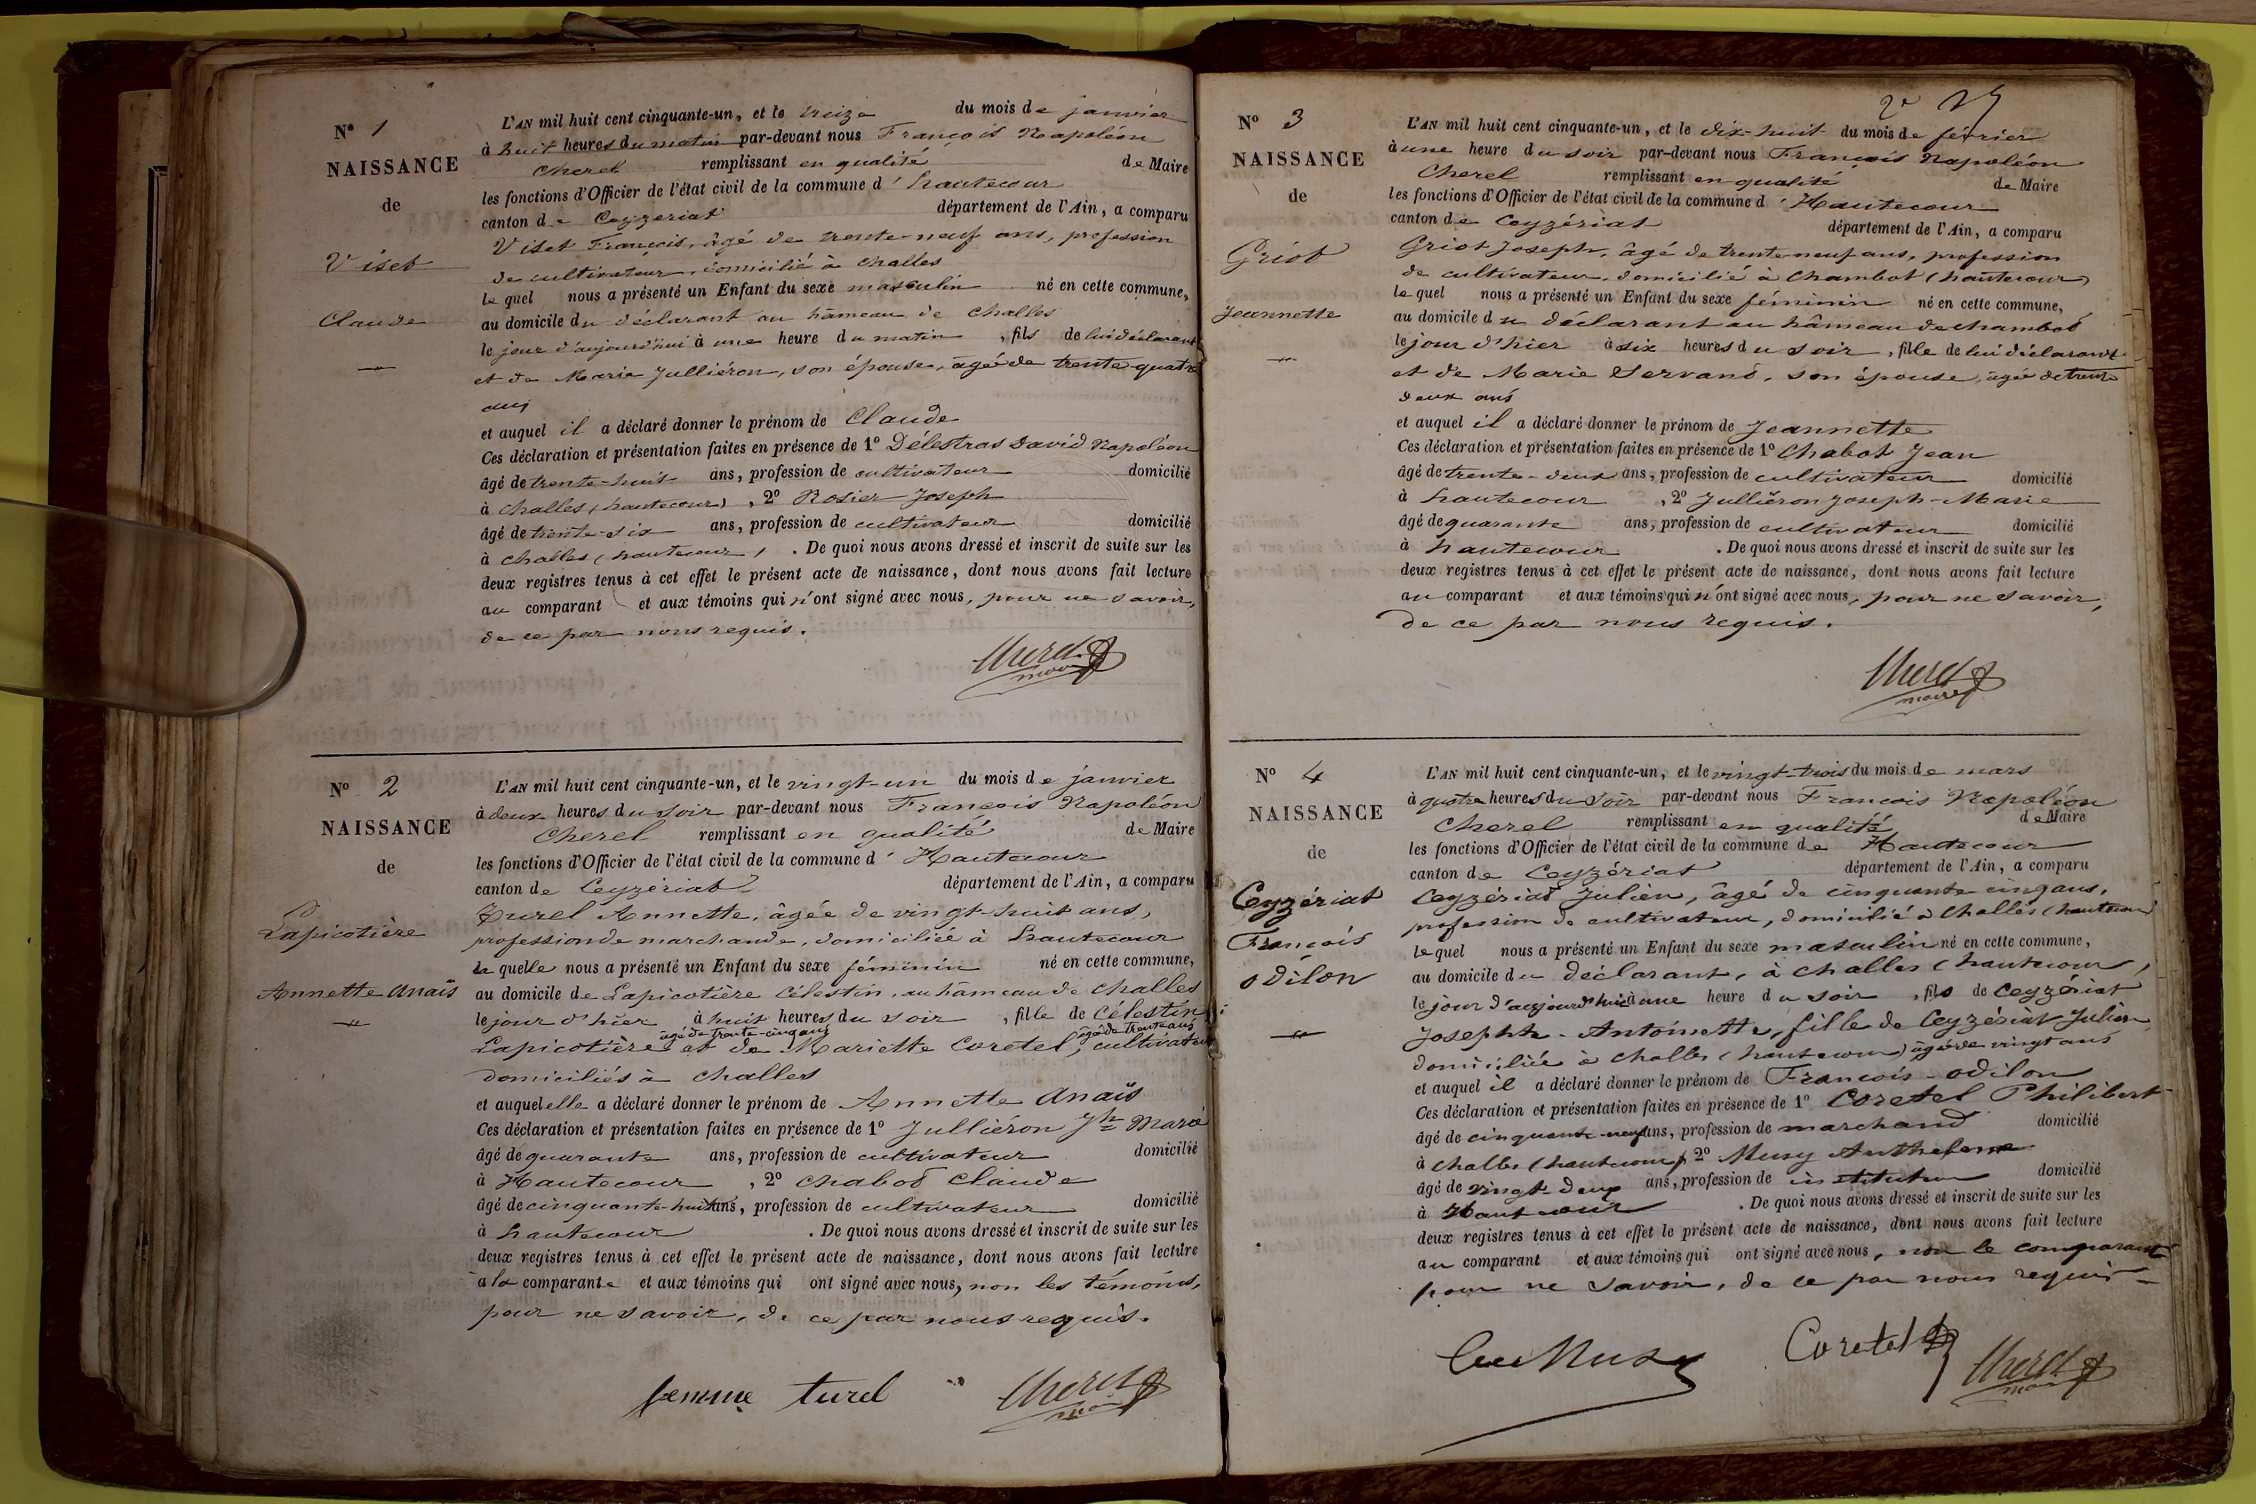 N° 1
NAISSANCE
de
Viset
Claude
L'AN mil huit cent cinquante-un, et le treize du mois de janvier
à huit heures du matin par-devant nous François Napoléon
Cherel remplissant en qualité de Maire
les fonctions d'Officier de l'état civil de la commune d'hautecour
canton de Ceyzeriat département de l'Ain, a comparu
Viset François, âgé de trente-neuf ans, profession
de cultivateur, domicilié à Challes
lequel nous a présenté un Enfant du sexe masculin né en cette commune,
au domicile du déclarant au hâmeau de Challes
le jour d'aujourd'hui à une heure du matin, fils de lui déclarant
et de Marie Julliéron, son épouse, âgée de trente-quatre
ans
et auquel il a déclaré donner le prénom de Claude
Ces déclaration et présentation faites en présence de 1° Délestras David Napoléon
âgé de trente-huit ans, profession de cultivateur domicilié
à Challes (hautecour), 2° Rosier Joseph
âgé de trente-six ans, profession de cultivateur domicilié
à Challes (hautecour). De quoi nous avons dressé et inscrit de suite sur les
deux registres tenus à cet effet le présent acte de naissance, dont nous avons fait lecture
au comparant et aux témoins qui n'ont signé avec nous, pour ne savoir,
de ce par nous requis.
Cherel
maire
N° 2
NAISSANCE
de
Lapicotière
Annette Anaïs
L'AN mil huit cent cinquante-un, et le vingt-un du mois de janvier
à deux heures du soir par-devant nous François Napoléon
Cherel remplissant en qualité de Maire
les fonctions d'Officier de l'état civil de la commune d'Hautecour
canton de Ceyzériat département de l'Ain, a comparu
Turel Annette, âgée de vingt-huit ans,
profession de marchande, domiciliée à hautecour
laquelle nous a présenté un Enfant du sexe féminin né en cette commune,
au domicile de Lapicotière Célestin, au hâmeau de Challes
le jour d'hier à huit heures du soir, fille de Célestin
âgé de trente-cinq ans âgée de trente ans
Lapicotière et de Mariette Coretel, cultivateurs
domiciliés à Challes
et auquel elle a déclaré donner le prénom de Annette Anaïs
Ces déclaration et présentation faites en présence de 1° Julliéron Jh Marie
âgé de quarante ans, profession de cultivateur domicilié
à Hautecour, 2° Chabod Claude
âgé de cinquante-huit ans, profession de cultivateur domicilié
à hautecour. De quoi nous avons dressé et inscrit de suite sur les
deux registres tenus à cet effet le présent acte de naissance, dont nous avons fait lecture
à la comparante et aux témoins qui ont signé avec nous, non les témoins,
pour ne savoir, de ce par nous requis.
femme turel
Cherel
maire
N° 3
NAISSANCE
de
Griot
Jeannette
L'AN mil huit cent cinquante-un, et le dix-huit du mois de février
à une heure du soir par-devant nous François Napoléon
Cherel remplissant en qualité de Maire
les fonctions d'Officier de l'état civil de la commune d'Hautecour
canton de Ceyzériat département de l'Ain, a comparu
Griot Joseph, âgé de trente-neuf ans, profession
de cultivateur, domicilié à Chambot (hautecour)
lequel nous a présenté un Enfant du sexe féminin né en cette commune,
au domicile du déclarant au hâmeau de Chambod
le jour d'hier à six heures du soir, fille de lui déclarant
et de Marie Servand, son épouse, âgée de trente
deux ans
et auquel il a déclaré donner le prénom de Jeannette
Ces déclaration et présentation faites en présence de 1° Chabot Jean
âgé de trente-deux ans, profession de cultivateur domicilié
à hautecour, 2° Julliéron Joseph-Marie
âgé de quarante ans, profession de cultivateur domicilié
à hautecour. De quoi nous avons dressé et inscrit de suite sur les
deux registres tenus à cet effet le présent acte de naissance, dont nous avons fait lecture
au comparant et aux témoins qui n'ont signé avec nous, pour ne savoir,
de ce par nous requis.
Cherel
maire
N° 4
NAISSANCE
de
Ceyzériat
François
odilon
L'AN mil huit cent cinquante-un, et le vingt-trois du mois de mars
à quatre heures du soir par-devant nous François Napoléon
Cherel remplissant en qualité de Maire
les fonctions d'Officier de l'état civil de la commune de Hautecour
canton de Ceyzériat département de l'Ain, a comparu
Ceyzériat Julien, âgé de cinquante cinq ans,
profession de cultivateur, domicilié à Challes (hautecour)
lequel nous a présenté un Enfant du sexe masculin né en cette commune,
au domicile du déclarant, à Challes (hautecour)
le jour d'aujourd'hui à une heure du soir, fils de Ceyzériat
Josephte-Antoinette, fille de Ceyzériat Julien
domiciliée à Challes (hautecour) âgée de vingt ans
et auquel il a déclaré donner le prénom de François-odilon
Ces déclaration et présentation faites en présence de 1° Coretel Philibert
âgé de cinquante-neuf ans, profession de marchand domicilié
à Challes (hautecour), 2° Musy Anthelme
âgé de vingt-deux ans, profession de instituteur domicilié
à Hautecour. De quoi nous avons dressé et inscrit de suite sur les
deux registres tenus à cet effet le présent acte de naissance, dont nous avons fait lecture
au comparant et aux témoins qui ont signé avec nous, non le comparant
pour ne savoir, de ce par nous requis
Musy
Coretel
Cherel
maire